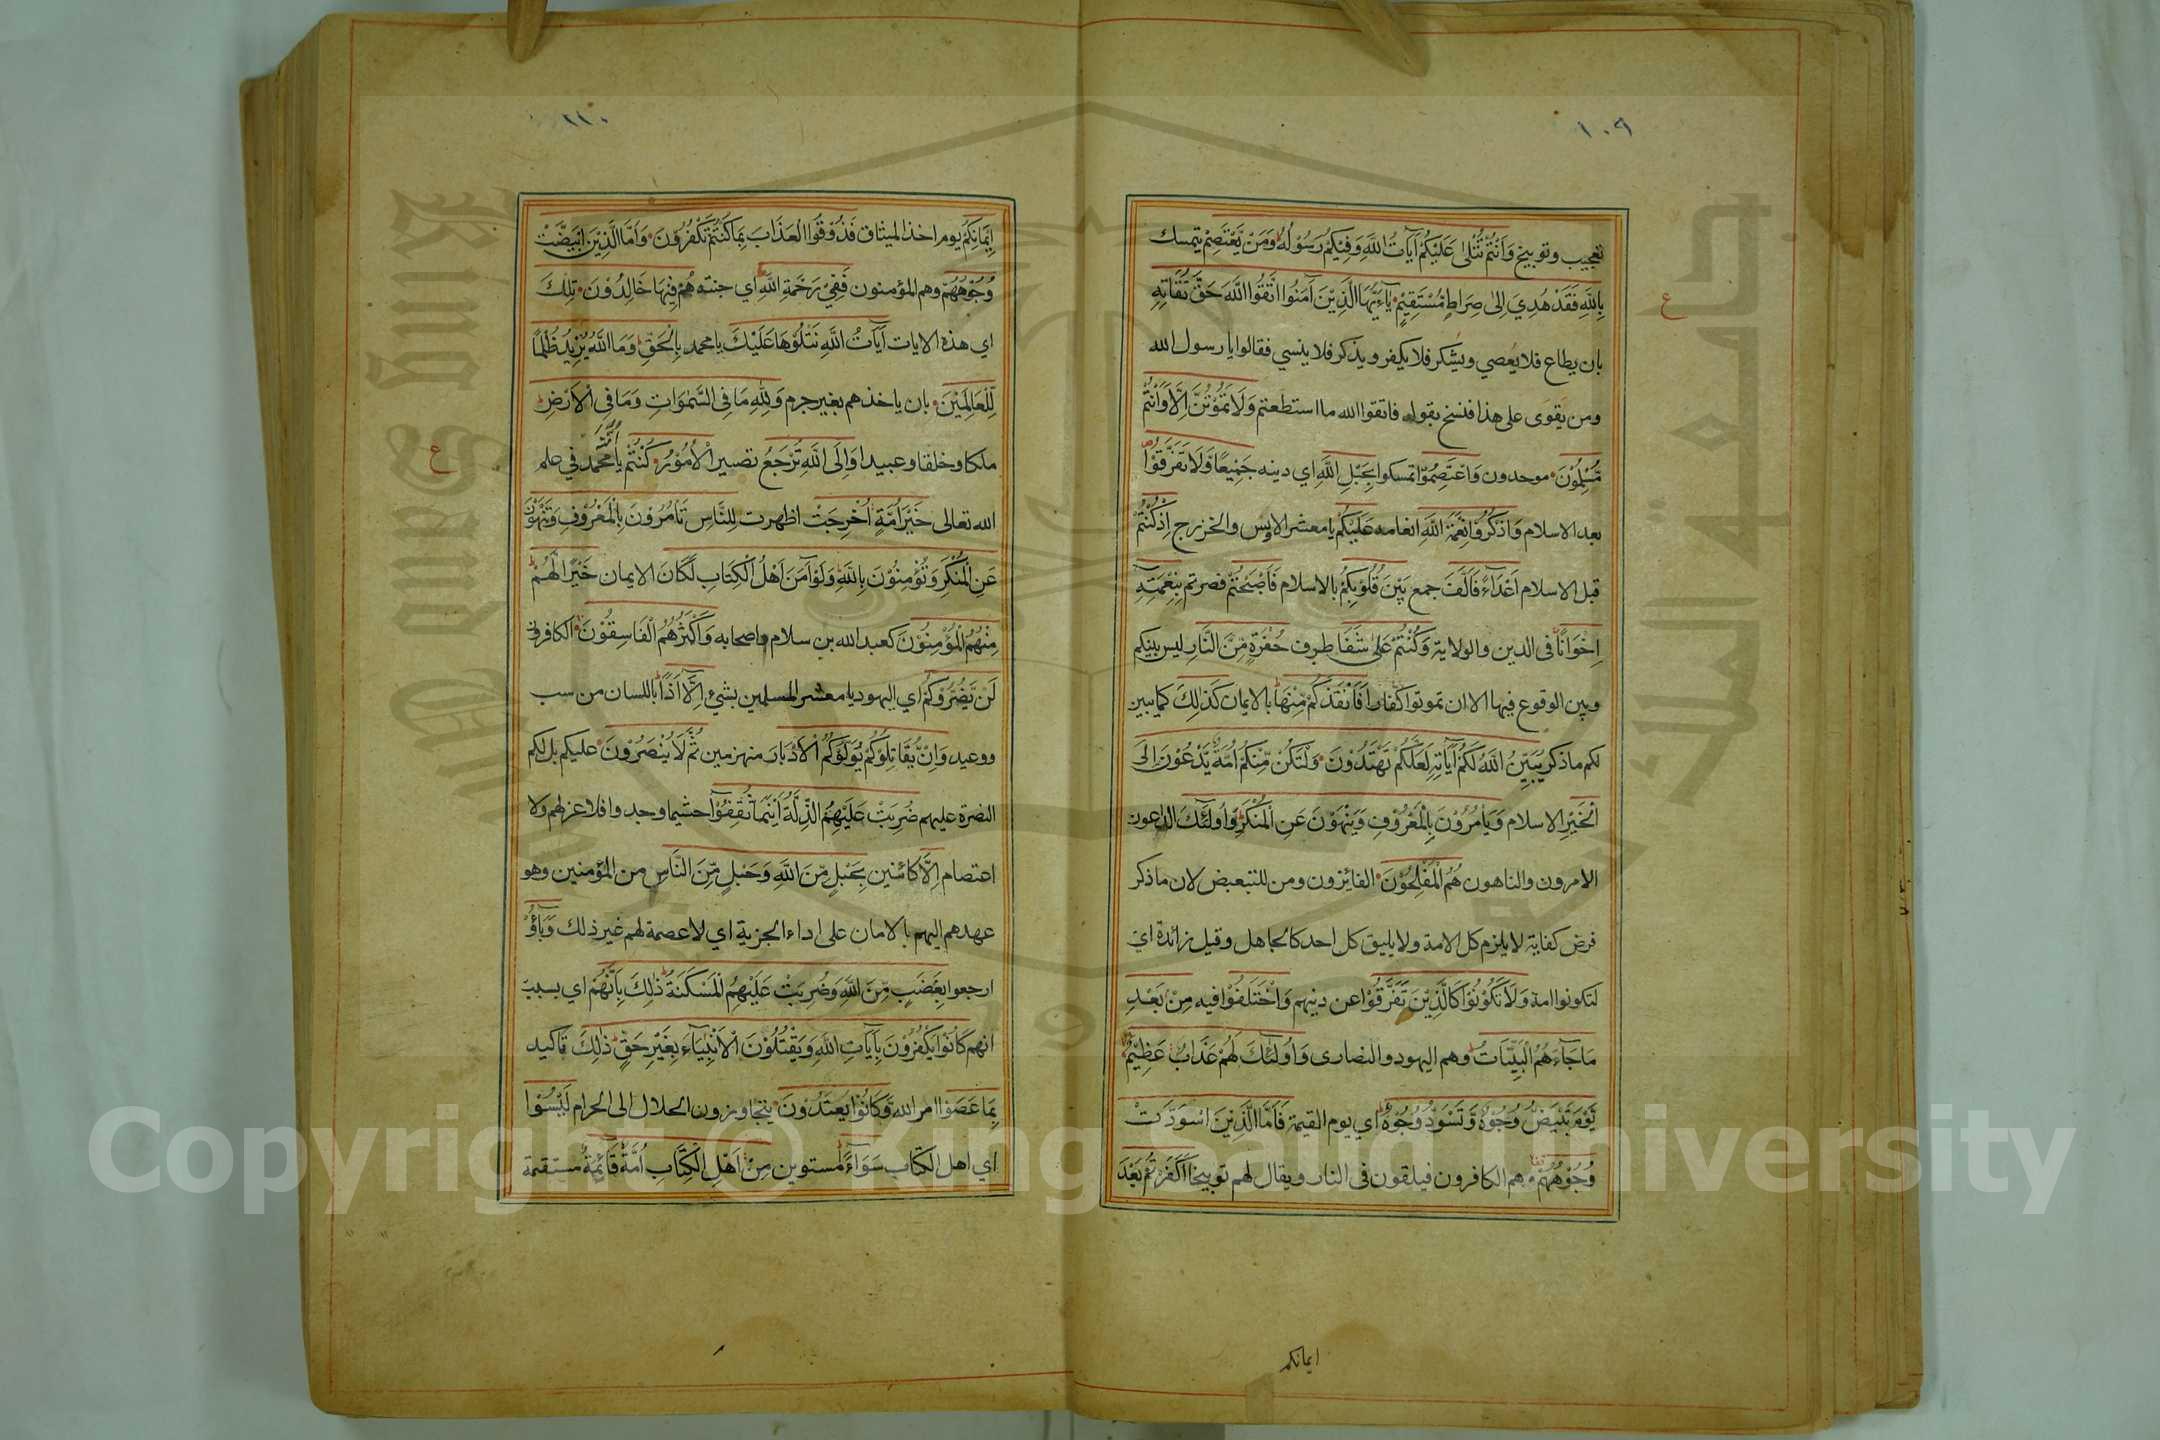 ١٠٩
تعجيب وتوبيخ وَاَنْتُمْ تُتْلٰى عَلَيْكُمْ آيَاتُ اللَّهِ وَفِيْكُمْ رَسُوْلُهُ وَمَنْ يَّعْتَصِمْ يتمسك
بِاللَّهِ فَقَدْ هُدِيَ اِلٰى صِرَاطٍ مُّسْتَقِيْمٍ يَآءَيُّهَا الَّذِيْنَ آمَنُوا اتَّقُوا اللَّهَ حَقَّ تُقَاتِهِ
ع
بان يطاع فلا يعصي ويشكر فلا يكفر ويذكر فلا ينسي فقالوا يا رسول الله
ومن يقوى على هذا فنسخ بقوله فاتقوا الله ما استطعتم وَلَا تَمُوْتُنَّ اِلَّا وَاَنْتُمْ
مُّسْلِمُوْنَ موحدون وَاعْتَصِمُوْا تمسكوا بِحَبْلِ اللَّهِ اي دينه جَمِيْعًا وَّلَا تَفَرَّقُوْا
بعد الاسلام وَاذْكُرُوْا نِعْمَةَ اللَّهِ انعامه عَلَيْكُمْ يا معشر الاوس والخزرج اِذْ كُنْتُمْ
قبل الاسلام اَعْدَآءً فَاَلَّفَ جمع بَيْنَ قُلُوْبِكُمْ بالاسلام فَاَصْبَحْتُمْ فصرتم بِنِعْمَتِهِ
اِخْوَانًا فى الدين والولاية وَكُنْتُمْ عَلٰى شَفَا طرف حُفْرَةٍ مِّنَ النَّارِ ليس بينكم
وبين الوقوع فيها الا ان تموتوا كفارا فَاَنْقَذَكُمْ مِّنْهَا بالايمان كَذٰلِكَ كما يبين
لكم ما ذكر يُبَيِّنُ اللَّهُ لَكُمْ آيَاتِهِ لَعَلَّكُمْ تَهْتَدُوْنَ وَلْتَكُنْ مِّنْكُمْ اُمَّةٌ يَّدْعُوْنَ اِلَى
الْخَيْرِ الاسلام وَيَاْمُرُوْنَ بِالْمَعْرُوْفِ وَيَنْهَوْنَ عَنِ الْمُنْكَرِ وَاُولٰٓئِكَ الداعون
الامرون والناهون هُمُ الْمُفْلِحُوْنَ الفائزون ومن للتبعيض لان ما ذكر
فرض كفاية لا يلزم كل الامة ولا يليق كل احد كالجاهل وقيل زائدة اي
لتكونوا امة وَلَا تَكُوْنُوْا كَالَّذِيْنَ تَفَرَّقُوْا عن دينهم وَاخْتَلَفُوْا فيه مِنْ بَعْدِ
مَا جَآءَهُمُ الْبَيِّنَاتُ وهم اليهود والنصارى وَاُولٰٓئِكَ لَهُمْ عَذَابٌ عَظِيْمٌ
يَّوْمَ تَبْيَضُّ وُجُوْهٌ وَّتَسْوَدُّ وُجُوْهٌ اي يوم القيمة فَاَمَّا الَّذِيْنَ اسْوَدَّتْ
وُجُوْهُهُمْ وهم الكافرون فيلقون فى النار ويقال لهم توبيخا اَكَفَرْتُمْ بَعْدَ
ايمانكم
١١٠
اِيْمَانِكُمْ يوم اخذ الميثاق فَذُوْقُوا الْعَذَابَ بِمَا كُنْتُمْ تَكْفُرُوْنَ وَاَمَّا الَّذِيْنَ ابْيَضَّتْ
وُجُوْهُهُمْ وهم المؤمنون فَفِيْ رَحْمَةِ اللَّهِ اي جنته هُمْ فِيْهَا خَالِدُوْنَ تِلْكَ
اي هذه الايات آيَاتُ اللَّهِ نَتْلُوْهَا عَلَيْكَ يا محمد بِالْحَقِّ وَمَا اللَّهُ يُرِيْدُ ظُلْمًا
لِّلْعَالَمِيْنَ بان ياخذهم بغير جرم وَلِلَّهِ مَا فِى السَّمٰوَاتِ وَمَا فِى الْاَرْضِ
ملكا وخلقا وعبيدا وَاِلَى اللَّهِ تُرْجَعُ تصير الْاُمُوْرُ كُنْتُمْ يا امة محمد في علم
ع
الله تعالى خَيْرَ اُمَّةٍ اُخْرِجَتْ اظهرت لِلنَّاسِ تَاْمُرُوْنَ بِالْمَعْرُوْفِ وَتَنْهَوْنَ
عَنِ الْمُنْكَرِ وَتُؤْمِنُوْنَ بِاللَّهِ وَلَوْ آمَنَ اَهْلُ الْكِتَابِ لَكَانَ الايمان خَيْرًا لَّهُمْ
مِنْهُمُ الْمُؤْمِنُوْنَ كعبد الله بن سلام واصحابه وَاَكْثَرُهُمُ الْفَاسِقُوْنَ الكافرون
لَنْ يَّضُرُّوْكُمْ اي اليهود يا معشر المسلمين بشيء اِلَّا اَذًى باللسان من سب
ووعيد وَاِنْ يُّقَاتِلُوْكُمْ يُوَلُّوْكُمُ الْاَدْبَارَ منهزمين ثُمَّ لَا يُنْصَرُوْنَ عليكم بل لكم
النصرة عليهم ضُرِبَتْ عَلَيْهِمُ الذِّلَّةُ اَيْنَمَا ثُقِفُوْآ حيثما وجدوا فلا عز لهم ولا
اعتصام اِلَّا كائنين بِحَبْلٍ مِّنَ اللَّهِ وَحَبْلٍ مِّنَ النَّاسِ من المؤمنين وهو
عهدهم اليهم بالامان على اداء الجزية اي لا عصمة لهم غير ذلك وَبَآؤُ
ارجعوا بِغَضَبٍ مِّنَ اللَّهِ وَضُرِبَتْ عَلَيْهِمُ الْمَسْكَنَةُ ذٰلِكَ بِاَنَّهُمْ اي بسبب
انهم كَانُوْا يَكْفُرُوْنَ بِآيَاتِ اللَّهِ وَيَقْتُلُوْنَ الْاَنْبِيَآءَ بِغَيْرِ حَقٍّ ذٰلِكَ تاكيد
بِمَا عَصَوْا امر الله وَّكَانُوْا يَعْتَدُوْنَ يتجاوزون الحلال الى الحرام لَيْسُوْا
اي اهل الكتاب سَوَآءً مستوين مِنْ اَهْلِ الْكِتَابِ اُمَّةٌ قَآئِمَةٌ مستقيمة
Copyright © King Saud University
King Saud University
جامعة الملك سعود